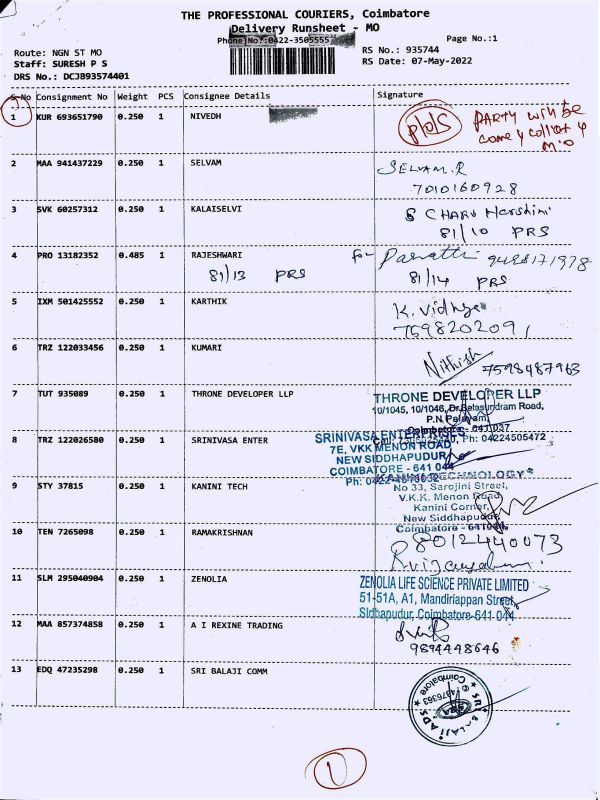 THE PROFESSIONAL COURIERS, Coimbatore
Delivery Runsheet - MO
Phone No.:0422-3505555
Page No.:1
Route: NGN ST MO
RS No.: 935744
Staff: SURESH P S
RS Date: 07-May-2022
DRS No.: DCJB93574401
S.No Consignment No Weight PCS Consignee Details Signature
1 KUR 693651790 0.250 1 NIVEDH
PARTY will be
come & collect &
M.O
2 MAA 941437229 0.250 1 SELVAM SELVAM.R
7010160928
3 SVK 60257312 0.250 1 KALAISELVI S CHARU Harshini
81/10 PRS
4 PRO 13182352 0.485 1 RAJESHWARI for
81/13 PRS 81/14 PRS
5 IXM 501425552 0.250 1 KARTHIK K. Vidhya
7598202091
6 TRZ 122033456 0.250 1 KUMARI Nithish 7598487963
7 TUT 935089 0.250 1 THRONE DEVELOPER LLP THRONE DEVELOPER LLP
10/1045, 10/1046, Dr.Balasundram Road,
P.N.Palayam,
Coimbatore - 641 037
Ph: 04224505472
8 TRZ 122026580 0.250 1 SRINIVASA ENTER SRINIVASA ENTERPRISE
7E, VKK MENON ROAD
NEW SIDDHAPUDUR
COIMBATORE - 641 044
9 STY 37815 0.250 1 KANINI TECH
No 33, Sarojini Street,
V.K.K. Menon Road
Kanini Corner,
New Siddhapudur,
Coimbatore - 641044
10 TEN 7265098 0.250 1 RAMAKRISHNAN 8012440073
11 SLM 295040904 0.250 1 ZENOLIA ZENOLIA LIFE SCIENCE PRIVATE LIMITED
51-51A, A1, Mandiriappan Street,
Sidhapudur, Coimbatore-641 044
12 MAA 857374858 0.250 1 A I REXINE TRADING
9894448646
13 EDQ 47235298 0.250 1 SRI BALAJI COMM
1